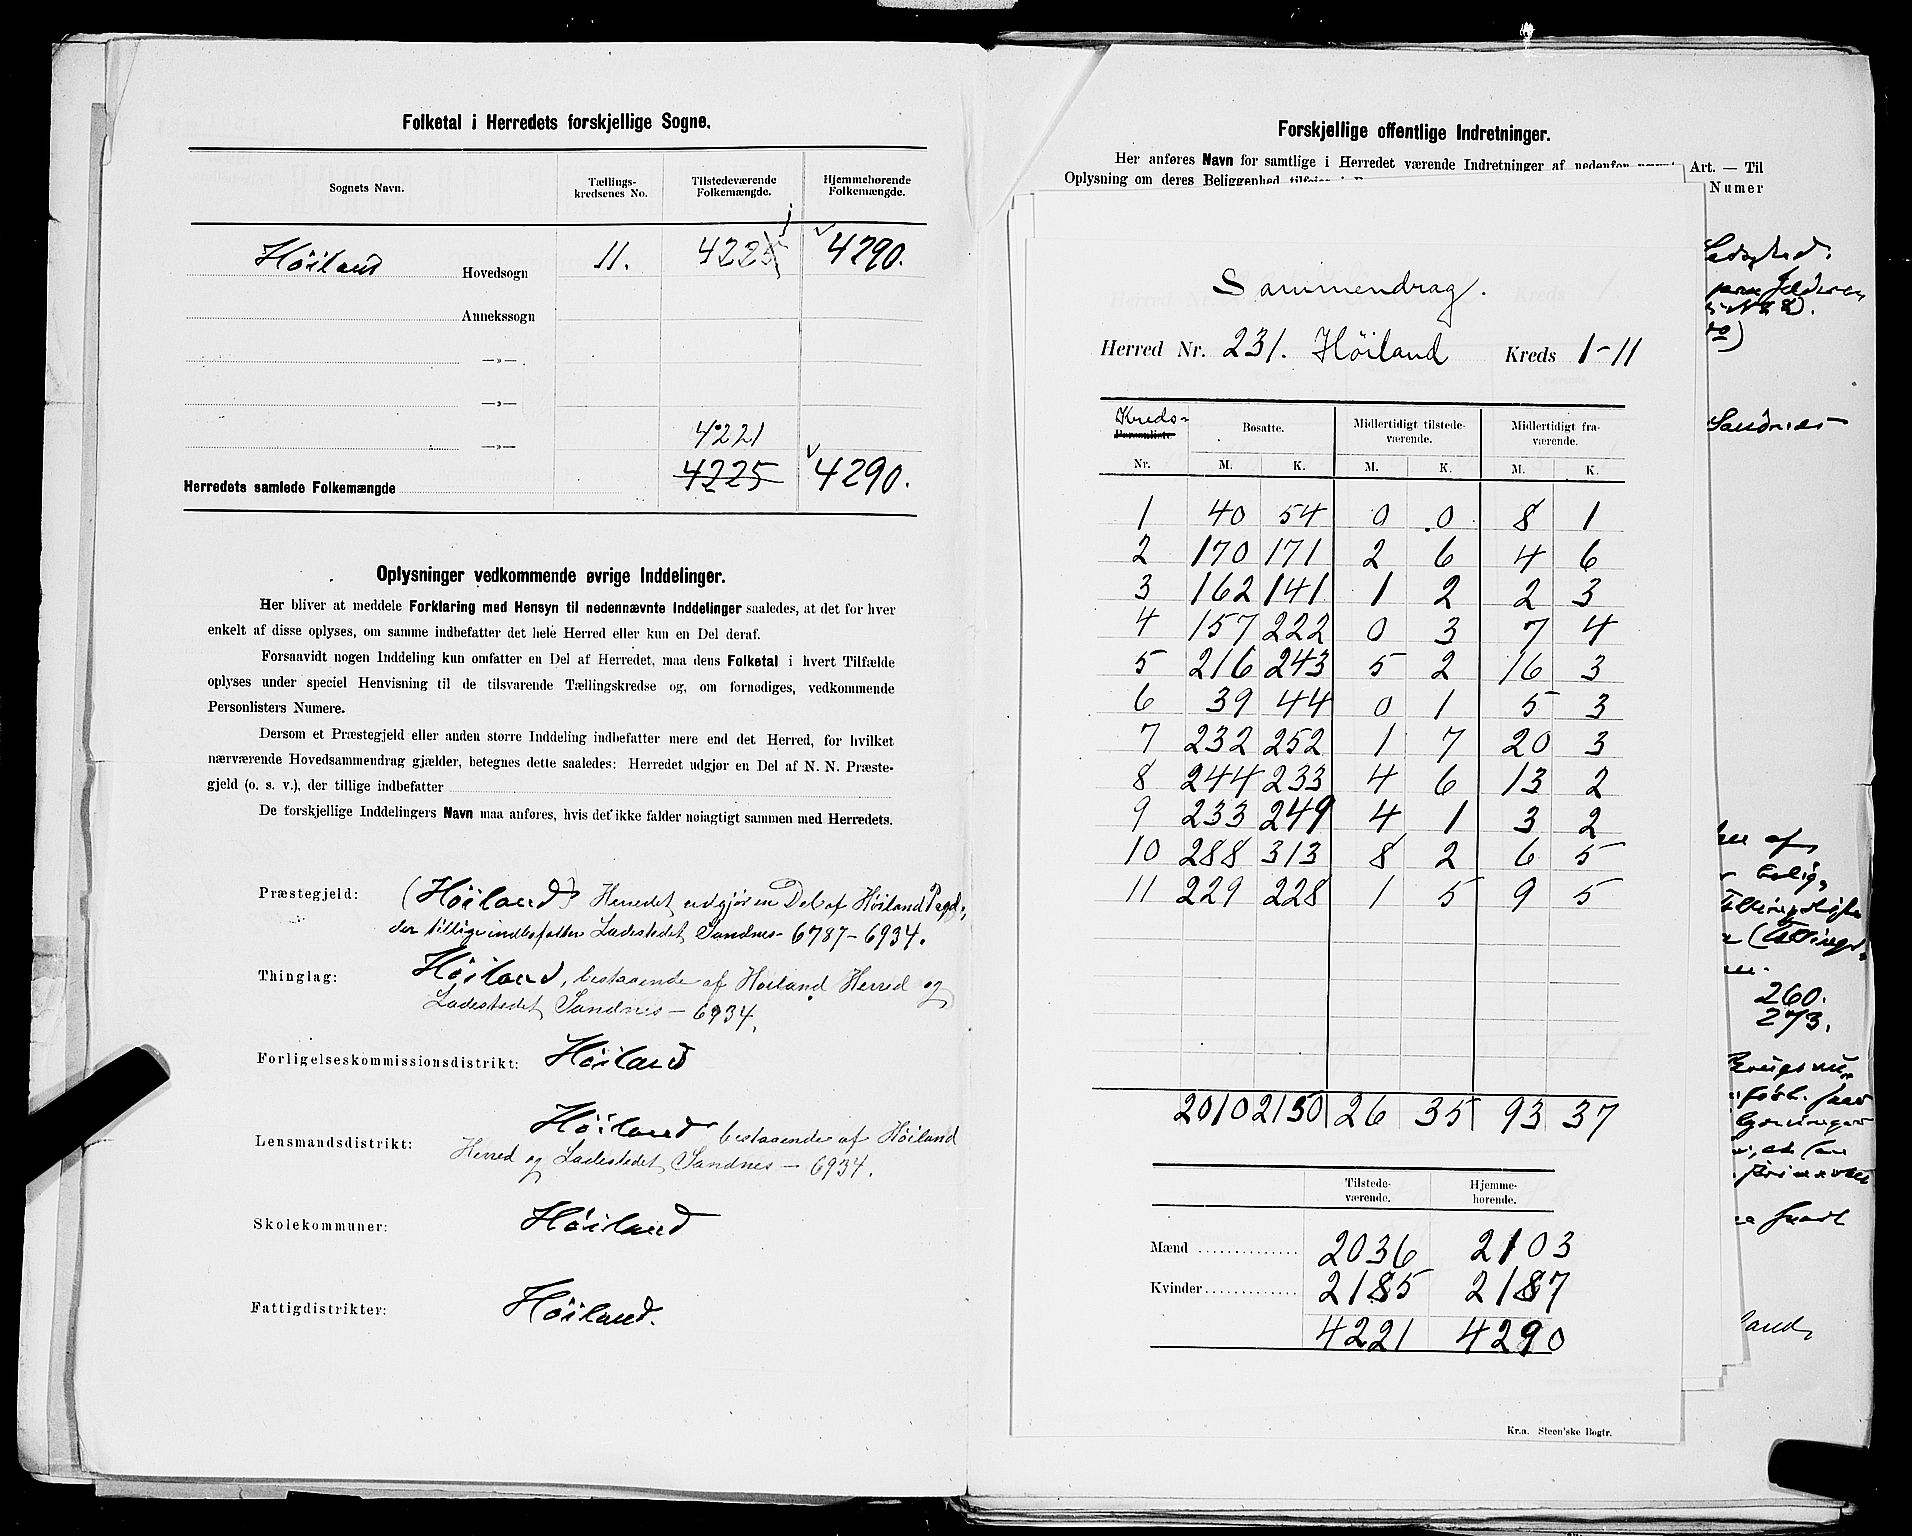 Folketal i Herredets forskjellige Sogne.
Sognets Navn. Tællings- kredsenes No. Tilstedeværende Folkemængde. Hjemmehørende Folkemængde.
Høiland Hovedsogn 11. 4225 1 4290.
Annekssogn
—»—
—»—
—»— 4221
Herredets samlede Folkemængde 4225 4290.
Oplysninger vedkommende øvrige Inddelinger.
Her bliver at meddele Forklaring med Hensyn til nedennævnte Inddelinger saaledes, at det for hver
enkelt af disse oplyses, om samme indbefatter det hele Herred eller kun en Del deraf.
Forsaavidt nogen Inddeling kun omfatter en Del af Herredet, maa dens Folketal i hvert Tilfælde
oplyses under speciel Henvisning til de tilsvarende Tællingskredse og, om fornødiges, vedkommende
Personlisters Numere.
Dersom et Præstegjeld eller anden større Inddeling indbefatter mere end det Herred, for hvilket
nærværende Hovedsammendrag gjælder, betegnes dette saaledes: Herredet udgjør en Del af N. N. Præste-
gjeld (o. s. v.), der tillige indbefatter
De forskjellige Inddelingers Navn maa anføres, hvis det ikke falder nøiagtigt sammen med Herredets.
Præstegjeld: (Høiland) Herredet udgjør en Del af Høiland Pgd.,
der tillige indbefatter Ladestedet Sandnes - 6787 - 6934.
Thinglag: Høiland, bestaaende af Høiland Herred og
Ladestedet Sandnes - 6934.
Forligelseskommissionsdistrikt: Høiland
Lensmandsdistrikt: Høiland bestaaende af Høiland
Herred og Ladestedet Sandnes - 6934.
Skolekommuner: Høiland
Fattigdistrikter: Høiland.
Forskjellige offentlige Indretninger.
Her anføres Navn for samtlige i Herredet værende Indretninger af nedenfor nævnt Art. — Til
Oplysning om deres Beliggenhed tilføies Numer
Sammendrag.
Herred Nr. 231. Høiland Kreds 1-11
Kreds- Personliste Nr. Bosatte. Midlertidigt tilstede- værende. Midlertidigt fra- værende.
M. K. M. K. M. K.
1 40 54 0 0 8 1
2 170 171 2 6 4 6
3 162 141 1 2 2 3
4 157 222 0 3 7 4
5 216 243 5 2 16 3
6 39 44 0 1 5 3
7 232 252 1 7 20 3
8 244 233 4 6 13 2
9 233 249 4 1 3 2
10 288 313 8 2 6 5
11 229 228 1 5 9 5
2010 2150 26 35 93 37
Tilstede- værende. Hjemme- hørende.
Mænd 2036 2103
Kvinder 2185 2187
4221 4290
Kr.a. Steen'ske Bogtr.
Sandnes
260.
273.